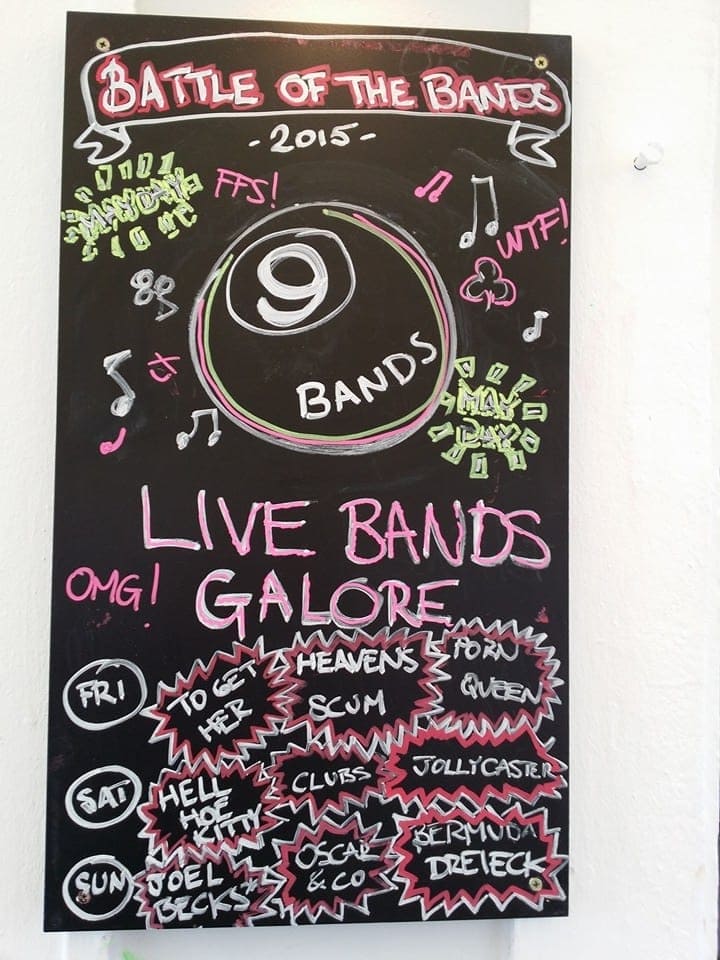 BATTLE OF THE BANDS
-2015-
MAYDAY
FFS!
WTF!
9
BANDS
MAY
DAY
LIVE BANDS
OMG!
GALORE
FRI
TO GET
HER
HEAVENS
SCUM
PORN
QUEEN
SAT
HELL
HOE
KITTY
CLUBS
JOLLYCASTER
SUN
JOEL
BECKS
OSCAR
& CO
BERMUDA
DREIECK